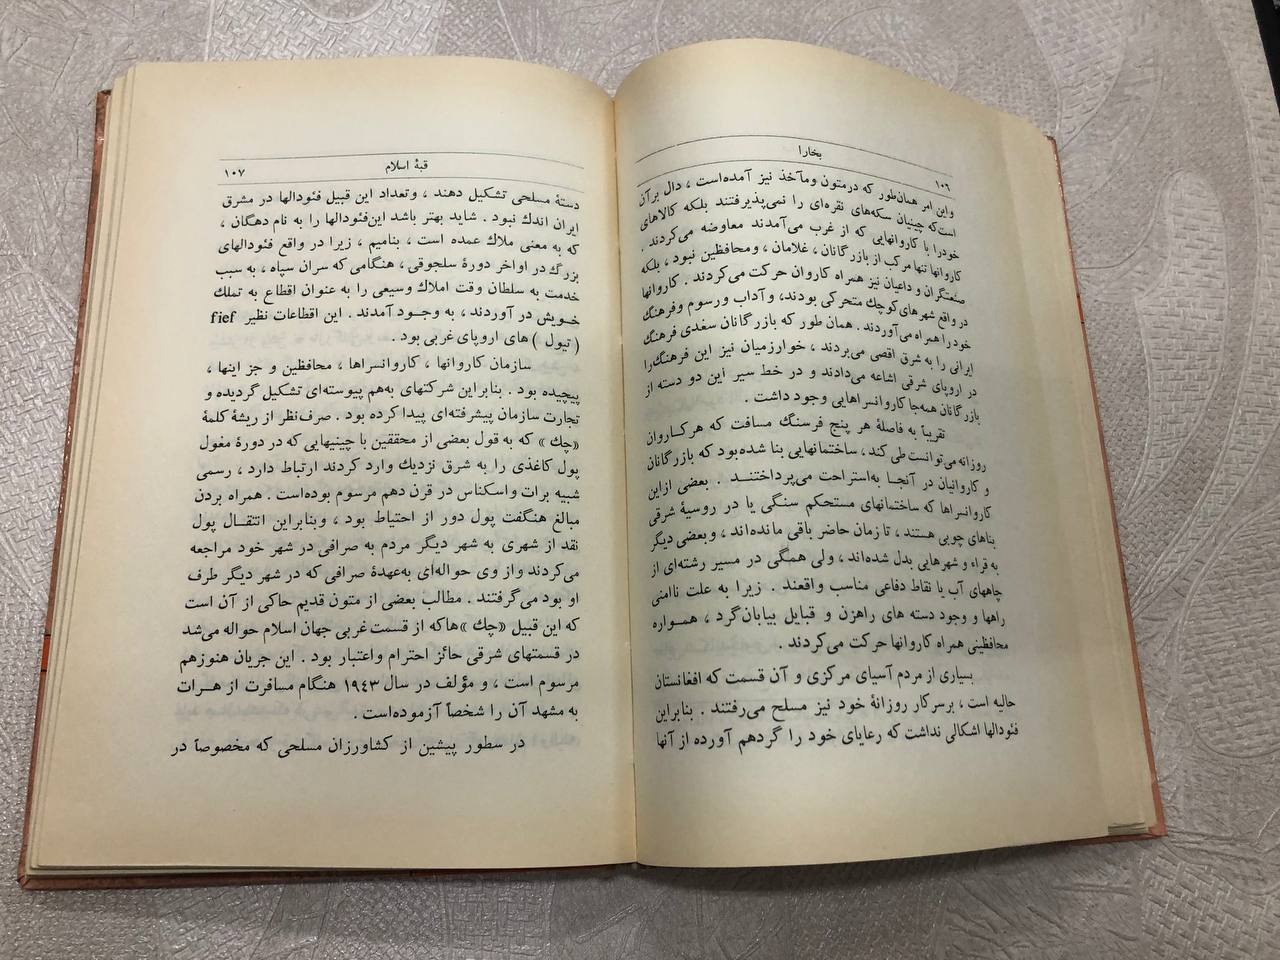 بخارا
۱۰۶
واین امر همان‌طور که درمتون ومآخذ نیز آمده‌است ، دال برآن
است‌که چینیان سکه‌های نقره‌ای را نمی‌پذیرفتند بلکه کالاهای
خودرا با کاروانهایی که از غرب می‌آمدند معاوضه می‌کردند .
کاروانها تنها مرکب از بازرگانان ، غلامان ، ومحافظین نبود ، بلکه
صنعتگران و داعیان نیز همراه کاروان حرکت می‌کردند . کاروانها
در واقع شهرهای کوچك متحرکی بودند، وآداب ورسوم وفرهنگ
خودرا همراه می‌آوردند . همان طور که بازرگانان سغدی فرهنگ
ایرانی را به شرق اقصی می‌بردند ، خوارزمیان نیز این فرهنگ‌را
در اروپای شرقی اشاعه می‌دادند و در خط سیر این دو دسته از
بازرگانان همه‌جا کاروانسراهایی وجود داشت .
تقریباً به فاصلهٔ هر پنج فرسنگ مسافت که هرکاروان
روزانه می‌توانست طی کند، ساختمانهایی بنا شده‌بود که بازرگانان
و کاروانیان در آنجا به‌استراحت می‌پرداختند . بعضی ازاین
کاروانسراها که ساختمانهای مستحکم سنگی یا در روسیهٔ شرقی
بناهای چوبی هستند ، تا زمان حاضر باقی مانده‌اند ، وبعضی دیگر
به قراء و شهرهایی بدل شده‌اند ، ولی همگی در مسیر رشته‌ای از
چاههای آب یا نقاط دفاعی مناسب واقعند . زیرا به علت ناامنی
راهها و وجود دسته های راهزن و قبایل بیابان‌گرد ، همواره
محافظینی همراه کاروانها حرکت می‌کردند .
بسیاری از مردم آسیای مرکزی و آن قسمت که افغانستان
حالیه است ، برسرکار روزانهٔ خود نیز مسلح می‌رفتند . بنابراین
فئودالها اشکالی نداشت که رعایای خود را گردهم آورده از آنها
قبهٔ اسلام
۱۰۷
دستهٔ مسلحی تشکیل دهند ، وتعداد این قبیل فئودالها در مشرق
ایران اندك نبود . شاید بهتر باشد این‌فئودالها را به نام دهگان ،
که به معنی ملاك عمده است ، بنامیم ، زیرا در واقع فئودالهای
بزرگ در اواخر دورهٔ سلجوقی ، هنگامی که سران سپاه ، به سبب
خدمت به سلطان وقت املاك وسیعی را به عنوان اقطاع به تملك
خویش در آوردند ، به وجود آمدند . این اقطاعات نظیر fief
( تیول ) های اروپای غربی بود .
سازمان کاروانها ، کاروانسراها ، محافظین و جز اینها ،
پیچیده بود . بنابراین شرکتهای به‌هم پیوسته‌ای تشکیل گردیده و
تجارت سازمان پیشرفته‌ای پیدا کرده بود . صرف‌نظر از ریشهٔ کلمهٔ
«چك » که به قول بعضی از محققین با چینیهایی که در دورهٔ مغول
پول کاغذی را به شرق نزدیك وارد کردند ارتباط دارد ، رسمی
شبیه برات واسکناس در قرن دهم مرسوم بوده‌است . همراه بردن
مبالغ هنگفت پول دور از احتیاط بود ، وبنابراین انتقال پول
نقد از شهری به شهر دیگر مردم به صرافی در شهر خود مراجعه
می‌کردند واز وی حواله‌ای به‌عهدهٔ صرافی که در شهر دیگر طرف
او بود می‌گرفتند . مطالب بعضی از متون قدیم حاکی از آن است
که این قبیل «چك »هاکه از قسمت غربی جهان اسلام حواله می‌شد
در قسمتهای شرقی حائز احترام واعتبار بود . این جریان هنوزهم
مرسوم است ، و مؤلف در سال ۱۹۴۳ هنگام مسافرت از هرات
به مشهد آن را شخصاً آزموده‌است .
در سطور پیشین از کشاورزان مسلحی که مخصوصاً در